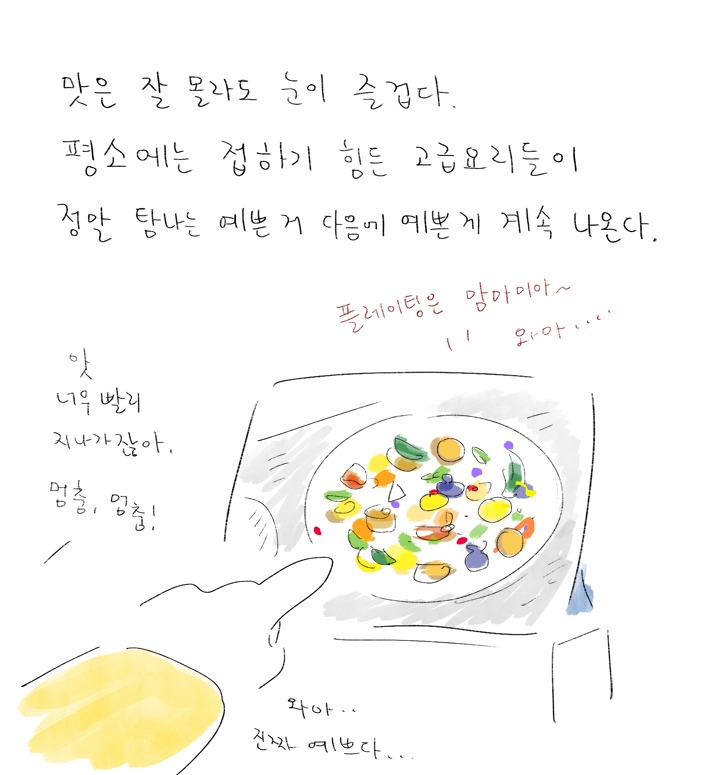 맛은 잘 몰라도 눈이 즐겁다.
평소에는 접하기 힘든 고급요리들이
정말 탐나는 예쁜 거 다음에 예쁜 게 계속 나온다.
플레이팅은 맘마미아~
와아....
앗
너무 빨리
지나가잖아.
멈춤, 멈춤!
와아..
진짜 예쁘다...